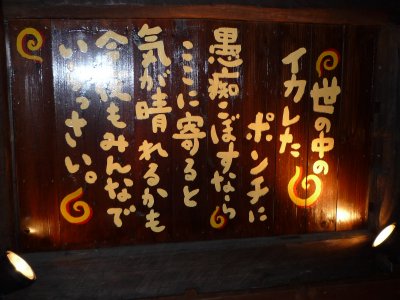 世の中の
イカレた
ポンチに
愚痴こぼすなら
ここに寄ると
気が晴れるかも
今夜もみんなで
いらっさい。